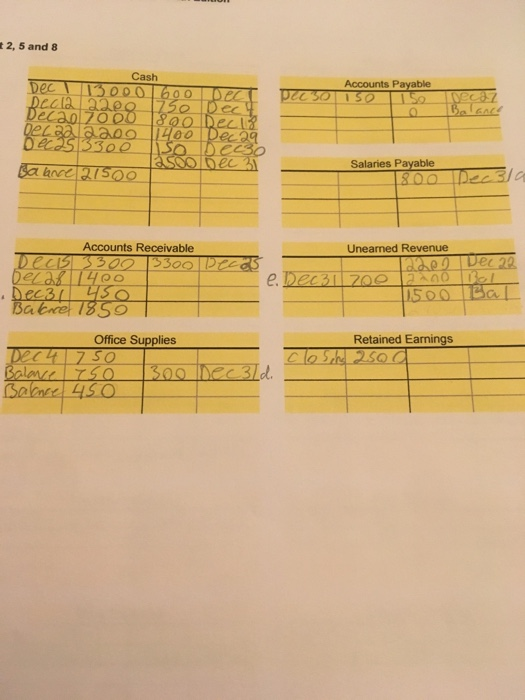 t 2, 5 and 8
Cash
Dec 1 13000 600 Dec 1
Dec 12 2200 750 Dec 4
Dec 20 7000 800 Dec 18
Dec 22 2200 1400 Dec 29
Dec 25 3300 150 Dec 30
2500 Dec 31
Balance 21500
Accounts Payable
Dec 30 150 150 Dec 27
0 Balance
Salaries Payable
800 Dec 31
Accounts Receivable
Dec 15 3300 3300 Dec 25
Dec 28 1400
Dec 31 450
Balance 1850
Unearned Revenue
2200 Dec 22
e. Dec 31 700 2200 Bal
1500 Bal
Office Supplies
Dec 4 750
Balance 750 300 Dec 31 d.
Balance 450
Retained Earnings
closing 2500